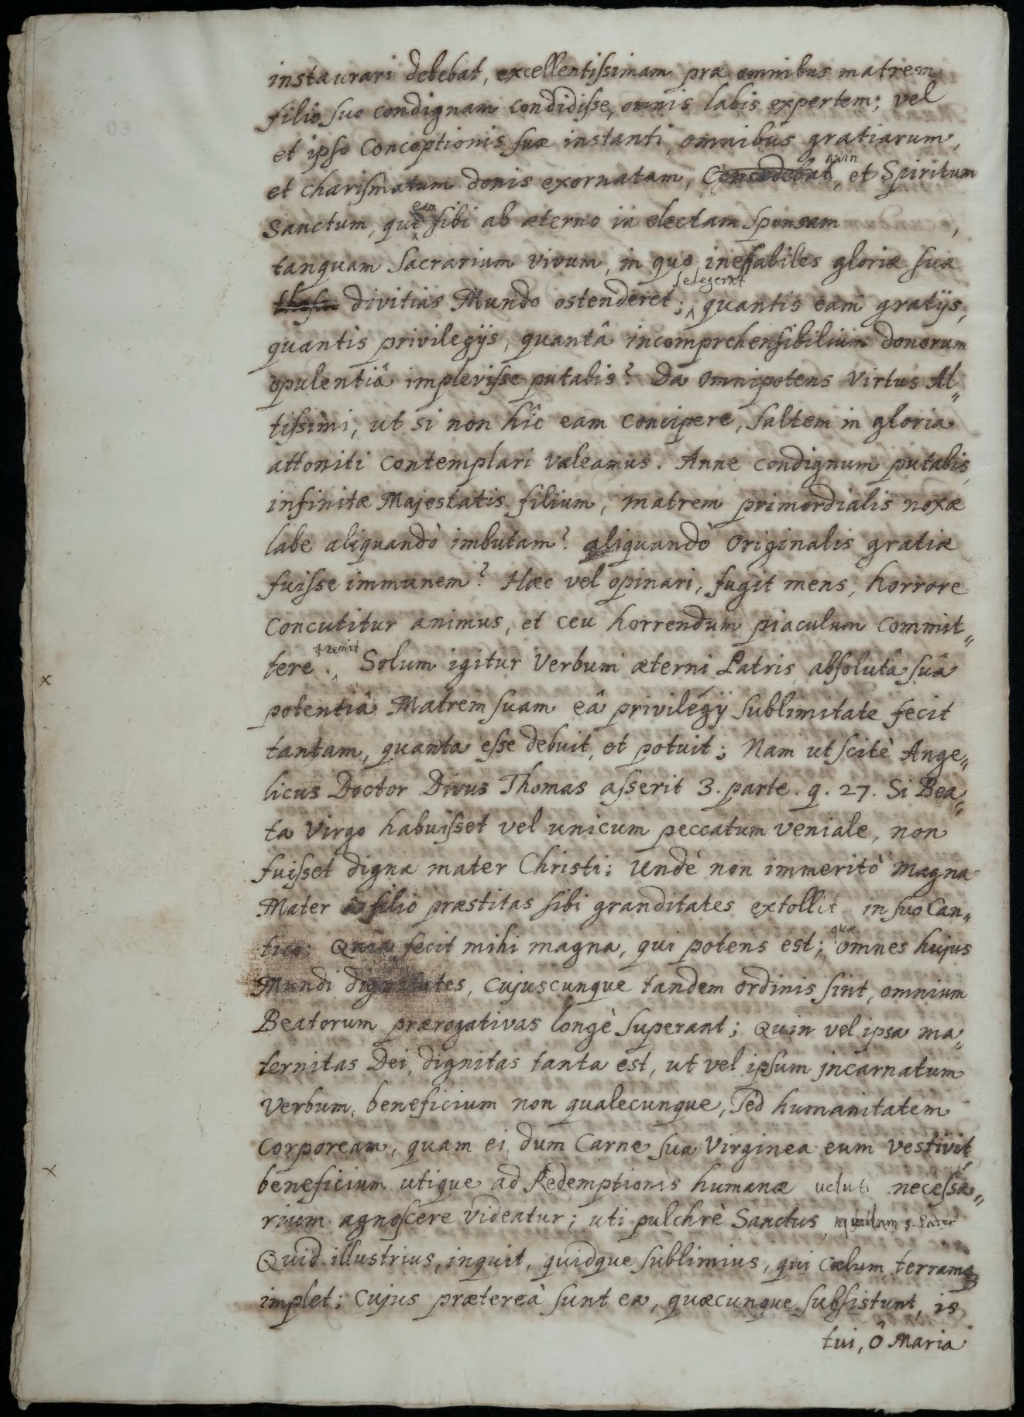 instaurari debebat, excellentissimam præ omnibus matrem
filio suo condignam condidisse, omnis labis expertem; vel
et ipso Conceptionis suæ instanti, omnibus gratiarum,
et charismatum donis exornatam, et Spiritum
Sanctum, qui eam sibi ab æterno in electam Sponsam
tanquam Sacrarium vivum, in quo ineffabiles gloriæ suæ
divitias Mundo ostenderet; selegerat quantis eam gratijs,
quantis privilegijs, quantâ incomprehensibilium donorum
opulentiâ implevisse putatis? Da Omnipotens Virtus Al„
tissimi, ut si non hîc eam concipere, saltem in gloria
attoniti contemplari valeamus. Anne condignum putabis
infinitæ Majestatis filium, matrem primordialis noxæ
labe aliquandò imbutam? aliquandò Originalis gratiæ
fuisse immunem? Hæc vel opinari, fugit mens, horrore
concutitur animus, et ceu horrendum piaculum commit„
tere tremit. Solum igitur Verbum æterni Patris, absolutâ suâ
potentiâ Matrem suam eâ privilegÿ sublimitate fecit
tantam, quanta esse debuit, et potuit; Nam ut scitè Ange„
licus Doctor Divus Thomas asserit 3. parte. q. 27. Si Bea„
ta Virgo habuisset vel unicum peccatum veniale, non
fuisset digna mater Christi; Undè non immeritò Magna
Mater à filio præstitas sibi granditates extollit in suo Can„
tico: Quia fecit mihi magna, qui potens est; quæ omnes hujus
Mundi dignitates, cujuscunque tandem ordinis sint, omnium
Beatorum prærogativas longè superant; Quin vel ipsa ma„
ternitas Dei, dignitas tanta est, ut vel ipsum jncarnatum
Verbum, beneficium non qualecunque, sed humanitatem
corpoream, quam ei, dum Carne sua Virginea eum vestivit
beneficium utique ad Redemptionis humanæ veluti necessa„
rium agnoscere videatur; uti pulchrè Sanctus
Quid illustrius, inquit, quidque sublimius, qui cælum terramq₃
implet; cujus prætereà sunt ea, quæcunque subsistunt, is
tui, Ô Maria